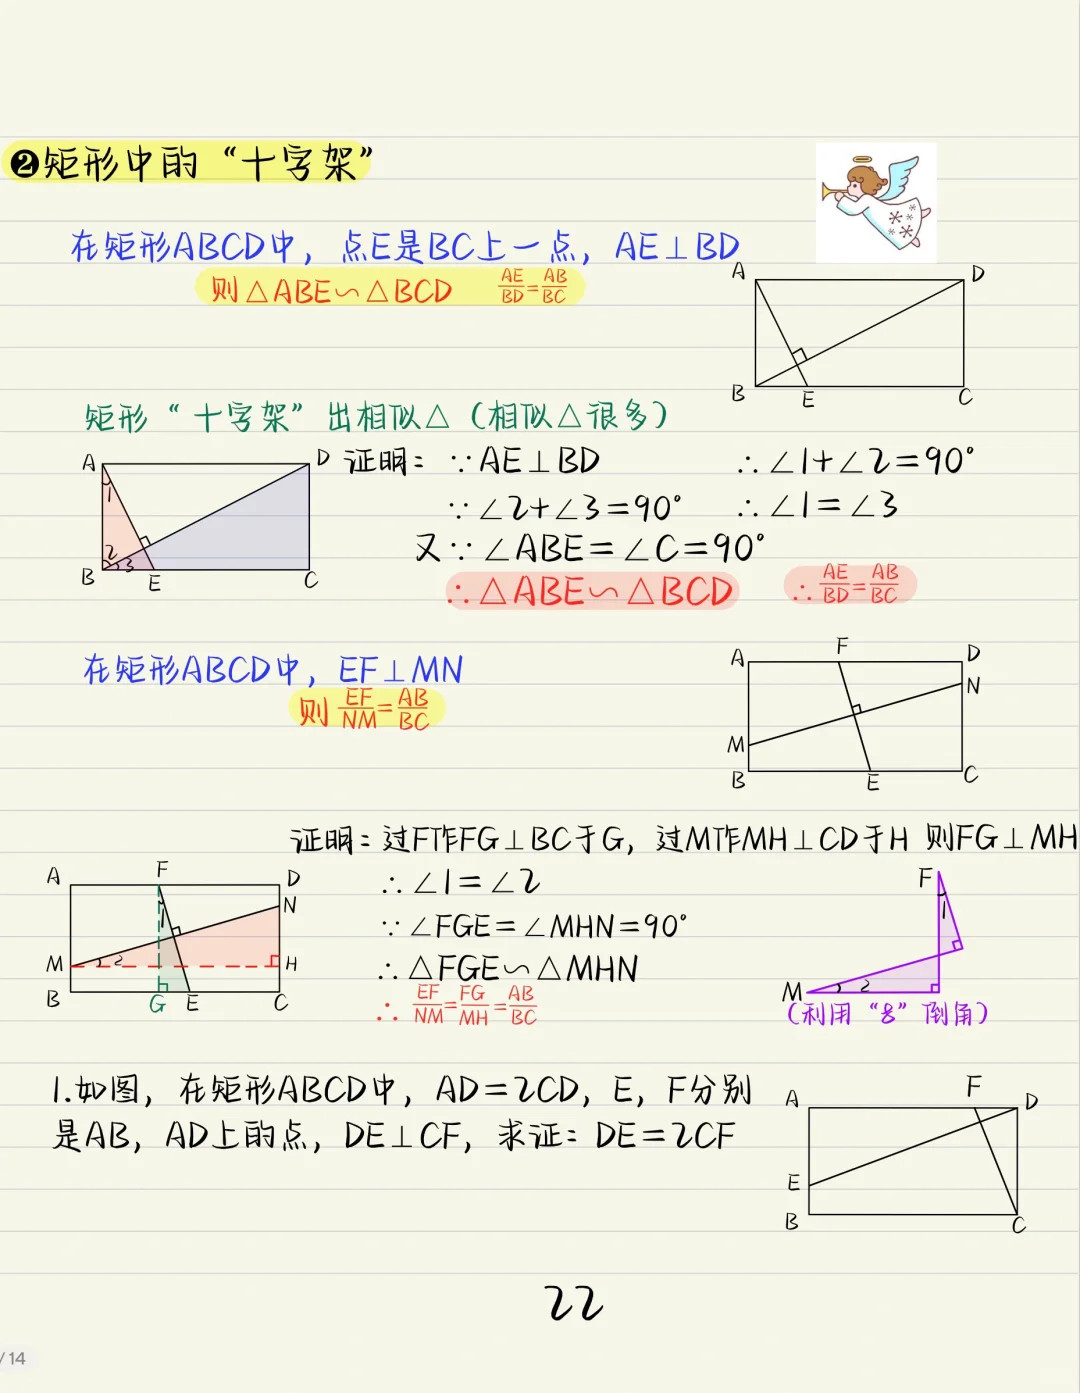 ❷矩形中的“十字架”
在矩形ABCD中，点E是BC上一点，AE⊥BD
则△ABE∽△BCD AE/BD=AB/BC
A D
B E C
矩形“十字架”出相似△（相似△很多）
A D
1
2 3
B E C
证明：∵AE⊥BD ∴∠1+∠2=90°
∵∠2+∠3=90° ∴∠1=∠3
又∵∠ABE=∠C=90°
∴△ABE∽△BCD ∴AE/BD=AB/BC
在矩形ABCD中，EF⊥MN
则EF/NM=AB/BC
A F D
N
M
B E C
证明：过F作FG⊥BC于G，过M作MH⊥CD于H 则FG⊥MH
∴∠1=∠2
∵∠FGE=∠MHN=90°
∴△FGE∽△MHN
∴EF/NM=FG/MH=AB/BC
A F D
1 N
M 2 H
B G E C
F
1
M 2
（利用“8”倒角）
1.如图，在矩形ABCD中，AD=2CD，E，F分别
是AB，AD上的点，DE⊥CF，求证：DE=2CF
A F D
E
B C
22
/14